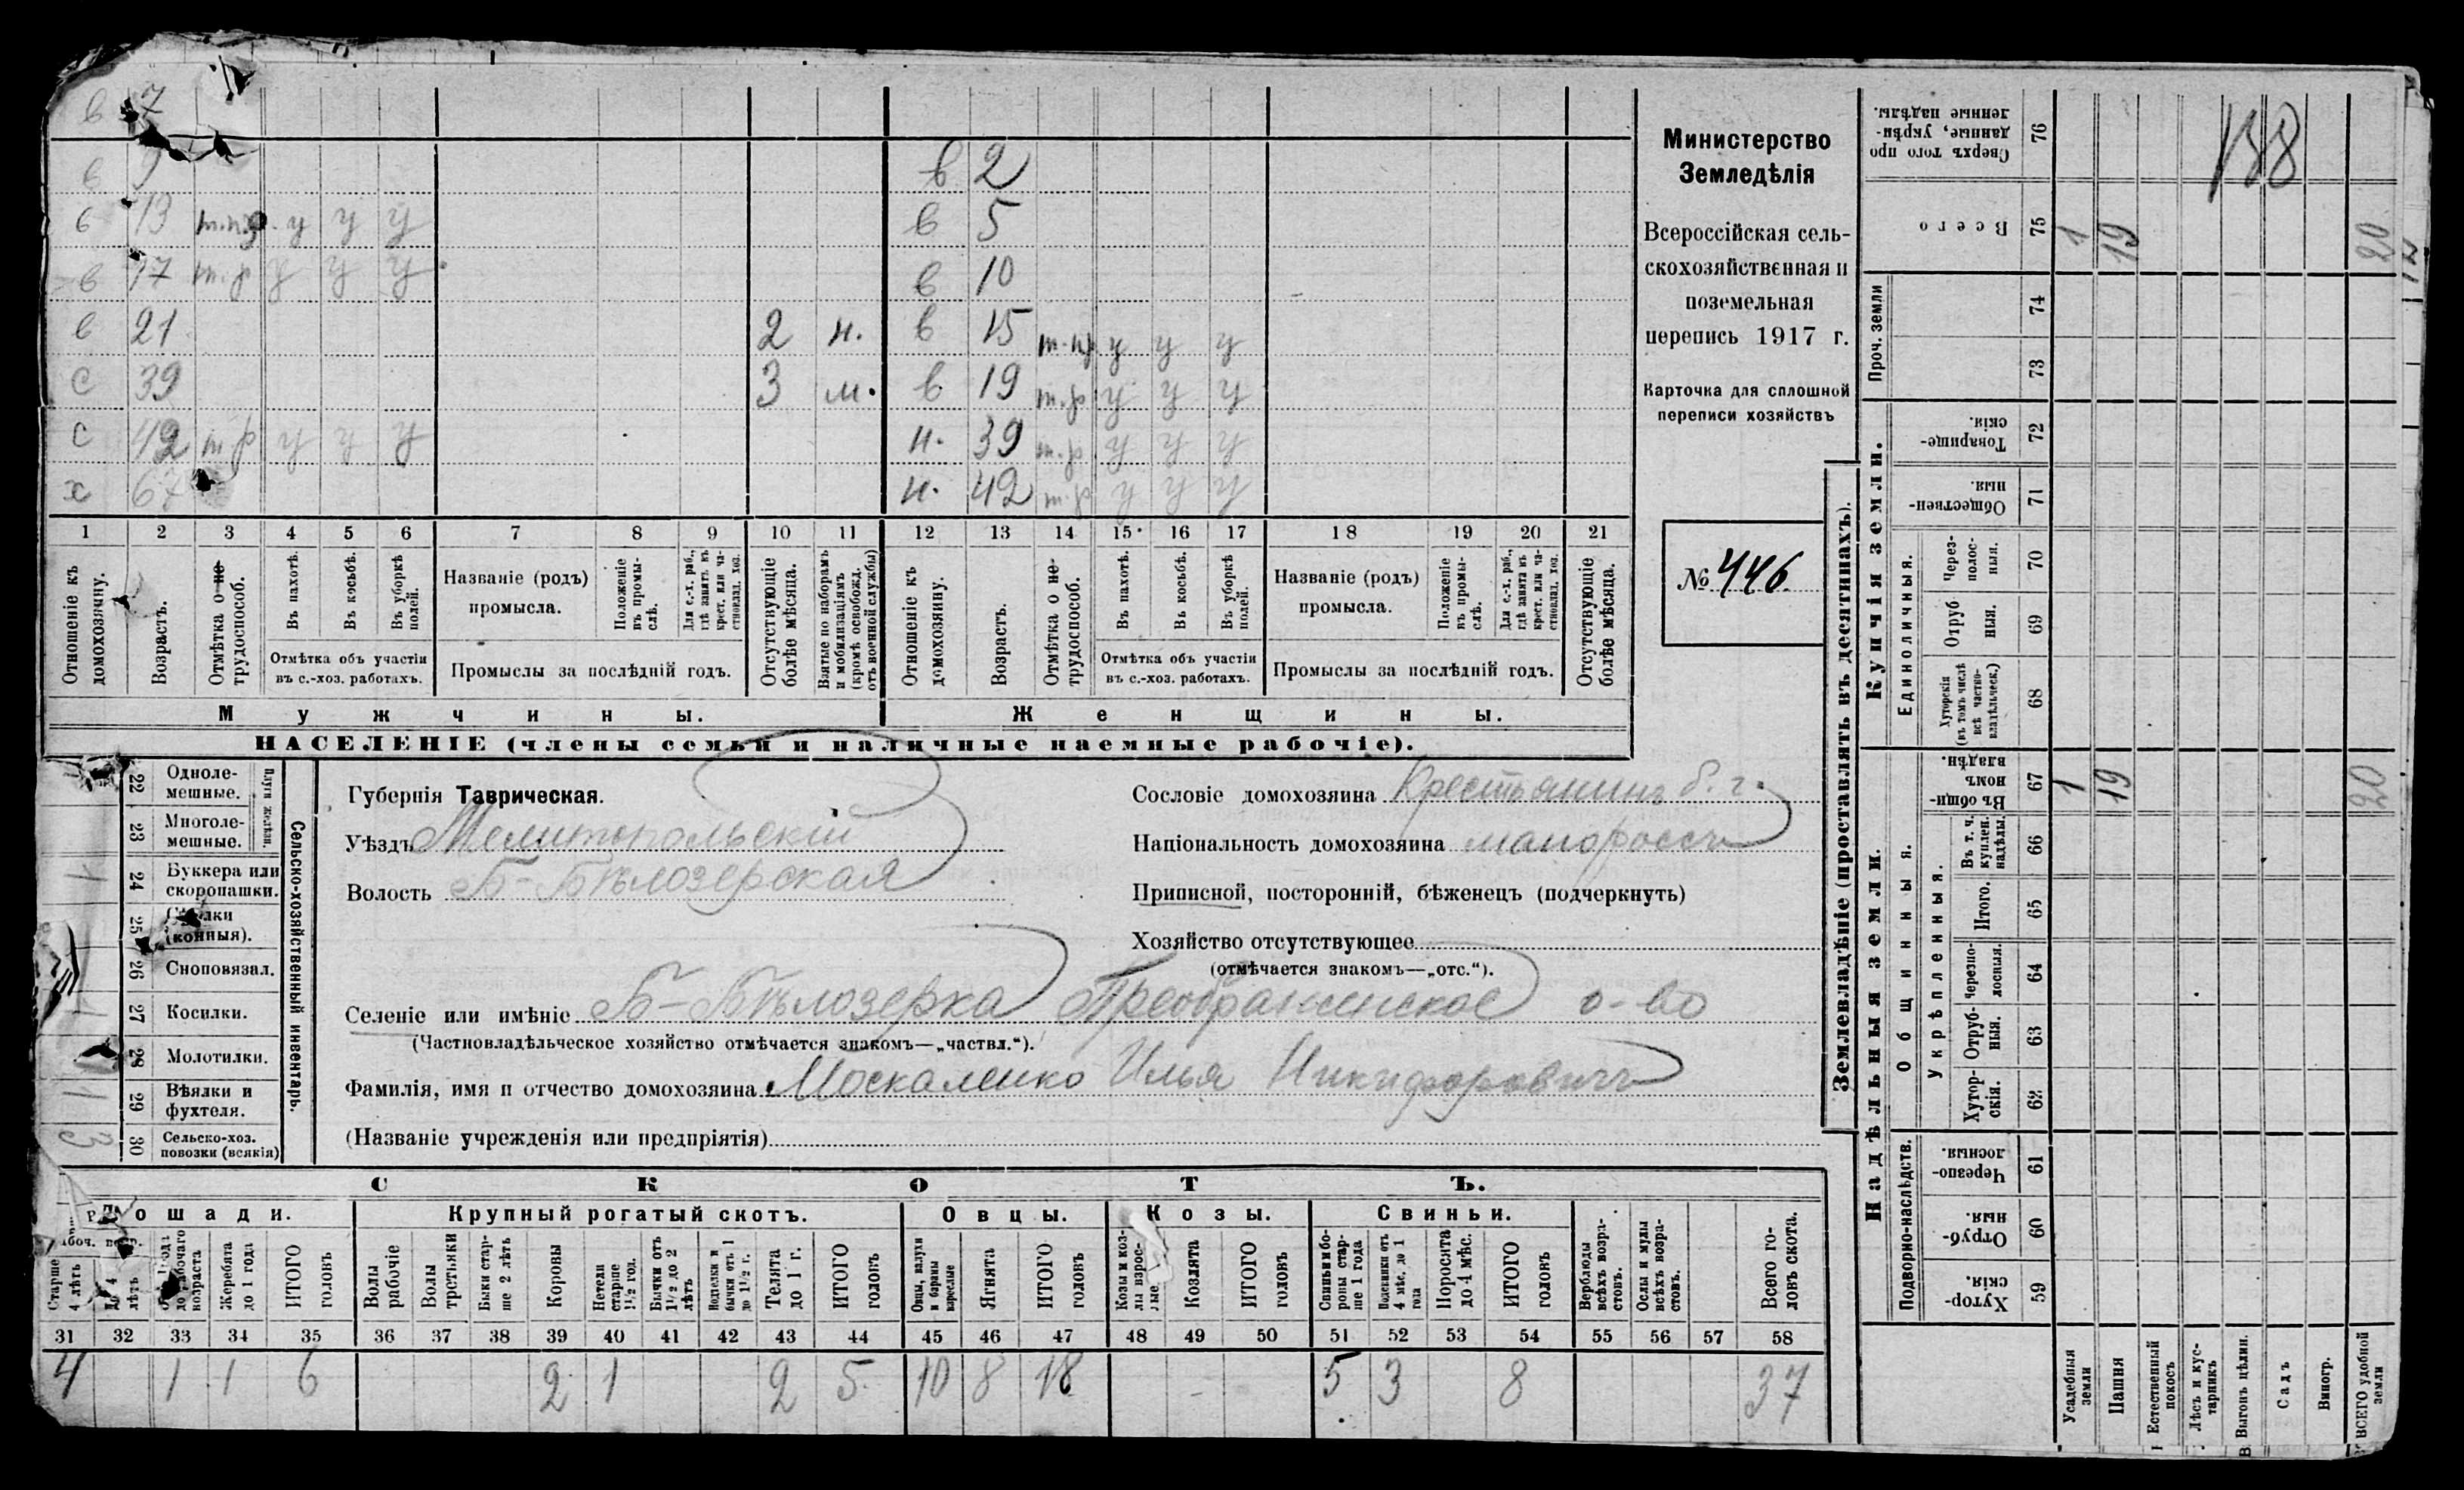 в 7
в 9
в 13 т.п.р. у у у
в 17 т.р у у у
в 21 2 н.
с 39 3 м.
с 42 т р у у у
х 67
в 2
в 5
в 10
в 15 т.пр у у у
в 19 т.р у у у
н. 39 т.р у у у
н. 42 т.р у у у
1 2 3 4 5 6 7 8 9 10 11 12 13 14 15 16 17 18 19 20 21
Отношеніе къ домохозяину.
Возрастъ.
Отмѣтка о не- трудоспособ.
Въ пахотѣ.
Въ косьбѣ.
Въ уборкѣ полей.
Отмѣтка объ участіи въ с.-хоз. работахъ.
Названіе (родъ) промысла.
Положеніе въ промы- слѣ.
Для с.-х. раб., гдѣ занятъ въ крест. или ча- стновлад. хоз.
Промыслы за послѣдній годъ.
Отсутствующіе болѣе мѣсяца.
Взятые по наборамъ и мобилизаціямъ (кромѣ освобожд. отъ военной службы)
Отношеніе къ домохозяину.
Возрастъ.
Отмѣтка о не- трудоспособ.
Въ пахотѣ.
Въ косьбѣ.
Въ уборкѣ полей.
Отмѣтка объ участіи въ с.-хоз. работахъ.
Названіе (родъ) промысла.
Положеніе въ промы- слѣ.
Для с.-х. раб., гдѣ занята въ крест. или ча- стновлад. хоз.
Промыслы за послѣдній годъ.
Отсутствующіе болѣе мѣсяца.
Мужчины.
Женщины.
НАСЕЛЕНІЕ (члены семьи и наличные наемные рабочіе).
Министерство
Земледѣлія
Всероссійская сель-
скохозяйственная и
поземельная
перепись 1917 г.
Карточка для сплошной
переписи хозяйствъ
№ 446.
22 Одноле- мешные.
23 Многоле- мешные.
Плуги желѣзн.
24 Буккера или скоропашки.
25 (конныя).
26 Сноповязал.
27 Косилки.
28 Молотилки.
29 Вѣялки и фухтеля.
30 Сельско-хоз. повозки (всякія)
1
1
3
Сельско-хозяйственный инвентарь.
Губернія Таврическая.
Уѣздъ Мелитопольскій
Волость Б-Бѣлозерская
Сословіе домохозяина Крестьянинъ б. г.
Національность домохозяина малороссъ
Приписной, посторонній, бѣженецъ (подчеркнуть)
Хозяйство отсутствующее
(отмѣчается знакомъ—„отс.“).
Селеніе или имѣніе Б-Бѣлозерка Преображенское о-во
(Частновладѣльческое хозяйство отмѣчается знакомъ—„частвл.“).
Фамилія, имя и отчество домохозяина Москаленко Илья Никифоровичъ
(Названіе учрежденія или предпріятія)
СКОТЪ.
Лошади.
Крупный рогатый скотъ.
Овцы.
Козы.
Свиньи.
Старше 4 лѣтъ
до 4 лѣтъ
до рабочаго возраста
Жеребята до 1 года
ИТОГО головъ
Волы рабочіе
Волы третьяки
Быки стар- ше 2 лѣтъ
Коровы
Нетели старше 1½ год.
Бычки отъ 1½ до 2 лѣтъ
Неделки и бычки отъ 1 до 1½ г.
Телята до 1 г.
ИТОГО головъ
Овцы, валухи и бараны взрослые
Ягнята
ИТОГО головъ
Козы и коз- лы взрос- лые
Козлята
ИТОГО головъ
Свиньи и бо- ровы стар- ше 1 года
Подсвинки отъ 4 мѣс. до 1 года
Поросята до 4 мѣс.
ИТОГО головъ
Верблюды всѣхъ возра- стовъ.
Ослы и мулы всѣхъ возра- стовъ.
Всего го- ловъ скота.
31 32 33 34 35 36 37 38 39 40 41 42 43 44 45 46 47 48 49 50 51 52 53 54 55 56 57 58
4 1 1 6 2 1 2 5 10 8 18 - 5 3 8 37
Землевладѣніе (проставлять въ десятинахъ).
Надѣльныя земли.
Купчія земли.
Проч. земли
Подворно-наслѣдств.
Общинныя.
Укрѣпленныя.
Единоличныя.
Сверхъ того про данные, укрѣп- ленные надѣлы. 76
Всего 75 1 19 20
74
73
Товарище- скія. 72
Обществен- ныя. 71
Через- полос- ныя. 70
Отруб ныя. 69
Хуторскія (въ томъ числѣ всѣ частно- владѣльческ.) 68
Въ общи- номъ владѣн. 67 1 19 20
Въ т. ч. куплен. надѣлы. 66
Итого. 65
Черезпо- лосныя. 64
Отруб- ныя. 63
Хутор- скія. 62
Черезпо- лосныя. 61
Отруб- ныя. 60
Хутор- скія. 59
Усадебныя земли
Пашня
Естественный покосъ
Лѣсъ и кус- тарникъ
Выгонъ цѣлин.
Садъ
Виногр.
ВСЕГО удобной земли
188